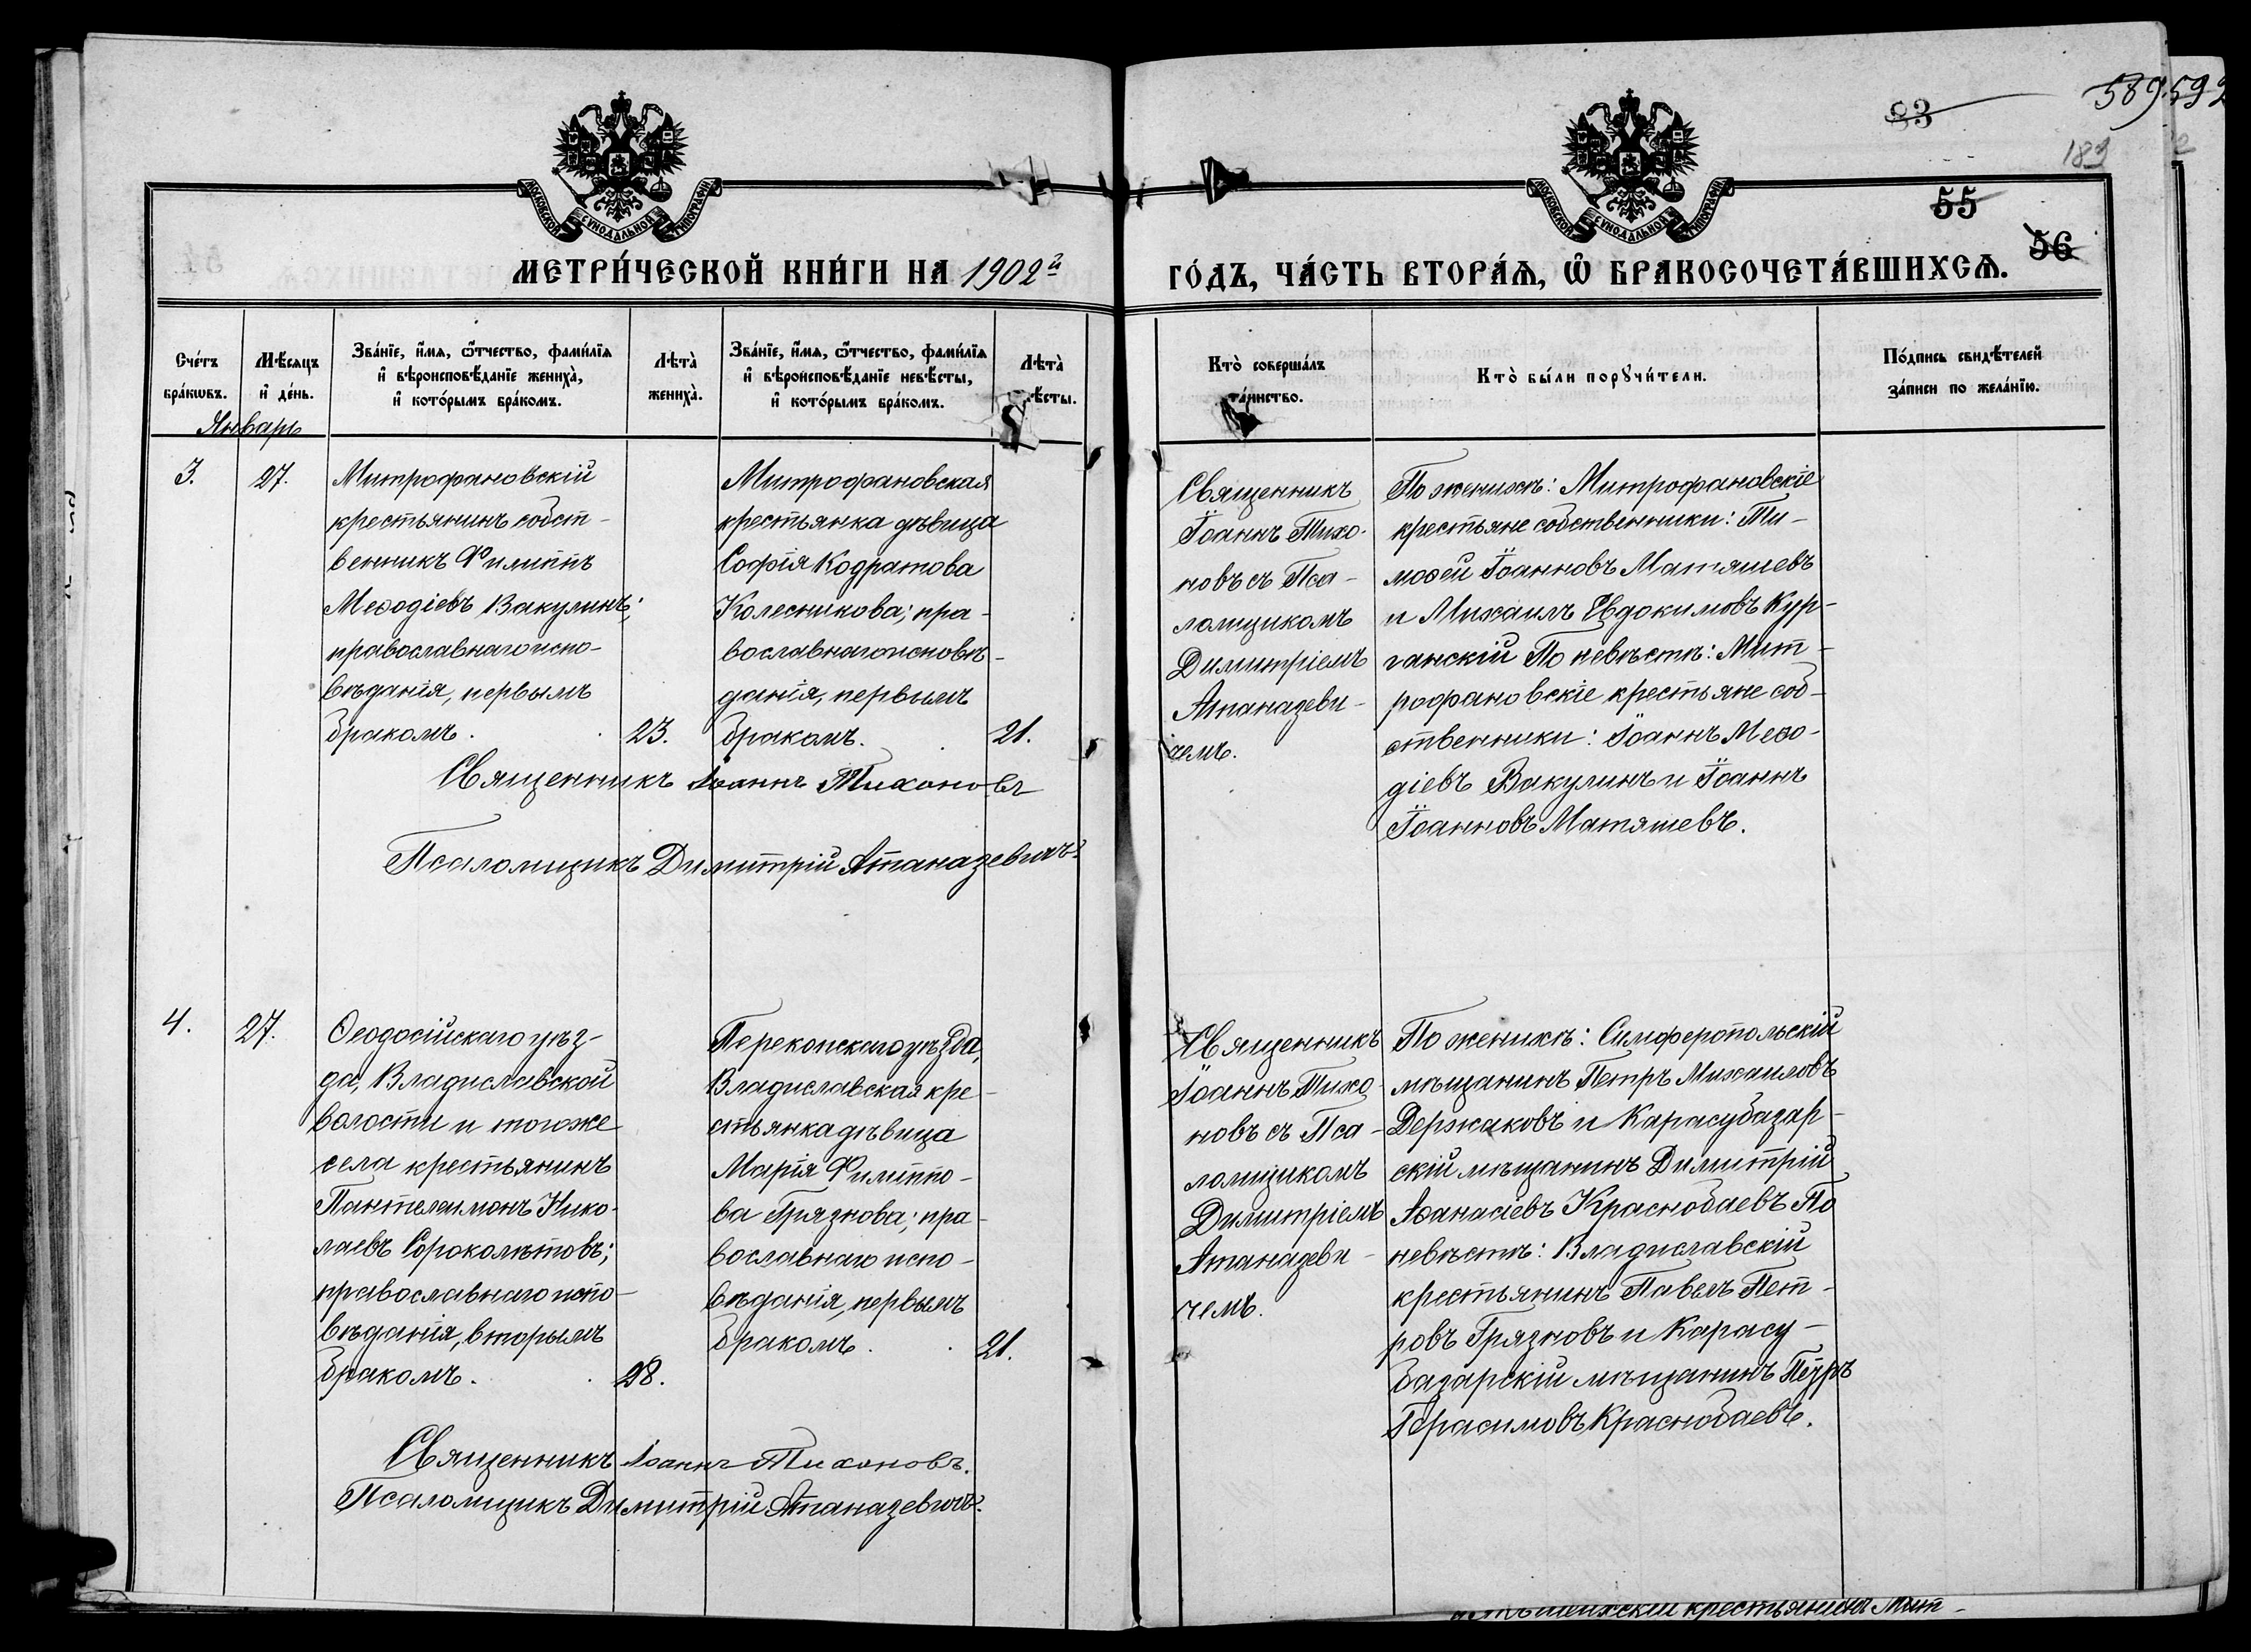 83
589.
592
183
МОСКОВСКОЙ СѴНОДАЛЬНОЙ ТИПОГРАФІИ
МОСКОВСКОЙ СѴНОДАЛЬНОЙ ТИПОГРАФІИ
55
56
МЕТРИ́ЧЕСКОЙ КНИ́ГИ НА 1902й
ГО́ДЪ, ЧА́СТЬ ВТОРА́Ѧ, Ѽ БРАКОСОЧЕТА́ВШИХСѦ.
Сче́тъ
бра́кωвъ.
Мѣ́сяцъ
и де́нь.
Зва́нїе, и҆́мя, ѻ҆́тчество, фами́лїя
и҆ вѣроисповѣ́данїе жениха̀,
и҆ кото́рымъ бра́комъ.
Лѣта̀
жениха̀.
Зва́нїе, и҆́мя, ѻ҆́тчество, фами́лїя
и҆ вѣроисповѣ́данїе невѣ́сты,
и҆ кото́рымъ бра́комъ.
Лѣта̀
ѣ́сты.
Кто̀ соверша́лъ
та́инство.
Кто̀ бы́ли порꙋчи́тели.
По́дпись свидѣ́телей
за́писи по жела́нїю.
Январь
3.
27.
Митрофановскій
крестьянинъ собст-
венникъ Филиппъ
Меѳодіевъ Вакулинъ;
православнаго испо-
вѣданія, первымъ
бракомъ.
23.
Митрофановская
крестьянка дѣвица
Софія Кодратова
Колесникова; пра-
вославнаго исповѣ-
данія, первымъ
бракомъ.
21.
Священникъ
Іоаннъ Тихо-
новъ съ Пса-
ломщикомъ
Димитріемъ
Атаназеви-
чемъ.
По женихѣ: Митрофановскіе
крестьяне собственники: Ти-
моѳей Іоанновъ Матяшевъ
и Михаилъ Евдокимовъ Кур-
ганскій По невѣстѣ: Мит-
рофановскіе крестьяне соб-
ственники: Іоаннъ Меѳо-
діевъ Вакулинъ и Іоаннъ
Іоанновъ Матяшевъ.
Священникъ Іоаннъ Тихоновъ
Псаломщикъ Димитрій Атаназевичъ.
4.
27.
Ѳеодосійскаго уѣз-
да, Владиславской
волости и того же
села крестьянинъ
Пантелеимонъ Нико-
лаевъ Сороколѣтовъ;
православнаго испо-
вѣданія, вторымъ
бракомъ.
28.
Перекопскаго уѣзда,
Владиславская кре-
стьянка дѣвица
Марія Филиппо-
ва Грязнова; пра-
вославнаго испо-
вѣданія, первымъ
бракомъ.
21.
Священникъ
Іоаннъ Тихо-
новъ съ Пса-
ломщикомъ
Димитріемъ
Атаназеви-
чемъ.
По женихѣ: Симферопольскій
мѣщанинъ Петръ Михаиловъ
Держаковъ и Карасубазар-
скій мѣщанинъ Димитрій
Аѳанасіевъ Краснобаевъ По
невѣстѣ: Владиславскій
крестьянинъ Павелъ Пет-
ровъ Грязновъ и Карасу-
базарскій мѣщанинъ Петръ
Герасимовъ Краснобаевъ.
Священникъ Іоаннъ Тихоновъ.
Псаломщикъ Димитрій Атаназевичъ.
крестьянинъ Мит-